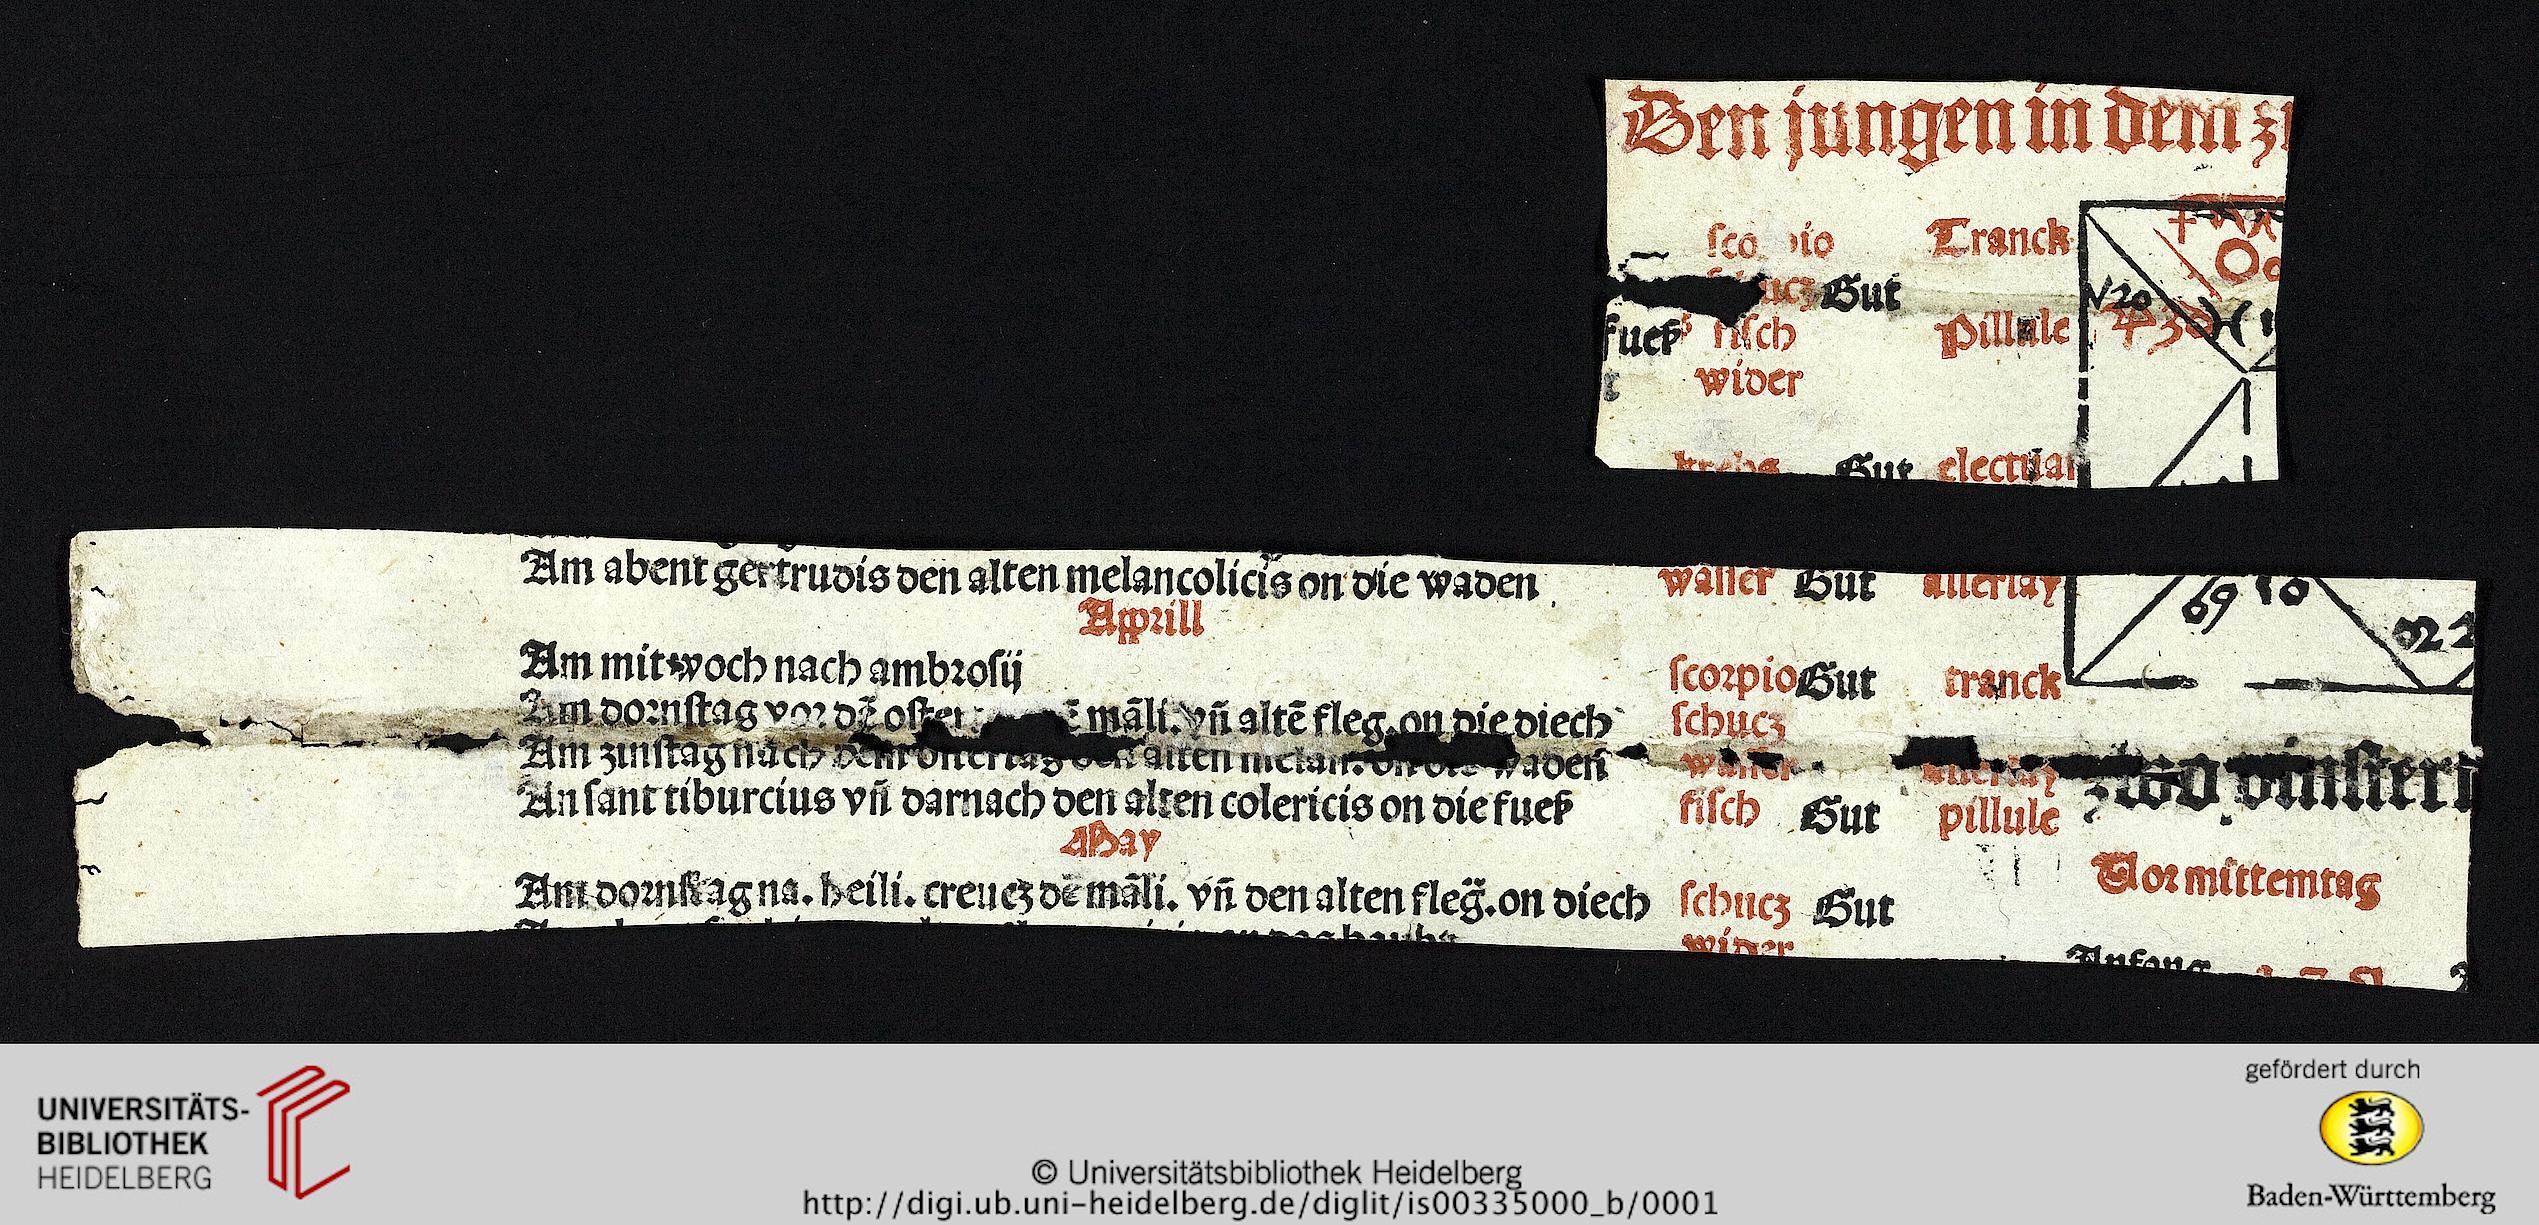 Den jungen in dem
ſco pio Tranck
ucz Gut
fueß fiſch Pillule
wider
krebs Gut electuar
√20
Am abent gertrudis den alten melancolicis on die waden waſſer Gut allerlay
69 10
Apprill
Am mitwoch nach ambroſij ſcorpio Gut tranck
Am dornſtag vor dē oſter māli. vñ altē fleg. on die diech ſchucz
Am zinſtag nach dem oſtertag den alten melan. on die waden waſſer allerlay
An ſant tiburcius vñ darnach den alten colericis on die fueß fiſch Gut pillule
zwo vinſter
May
Vor mittemtag
Am dornſtag na. heili. creucz dē māli. vñ den alten fleg̃. on diech ſchucz Gut
wider
Anfang
UNIVERSITÄTS-
BIBLIOTHEK
HEIDELBERG
© Universitätsbibliothek Heidelberg
http://digi.ub.uni-heidelberg.de/diglit/is00335000_b/0001
gefördert durch
Baden-Württemberg